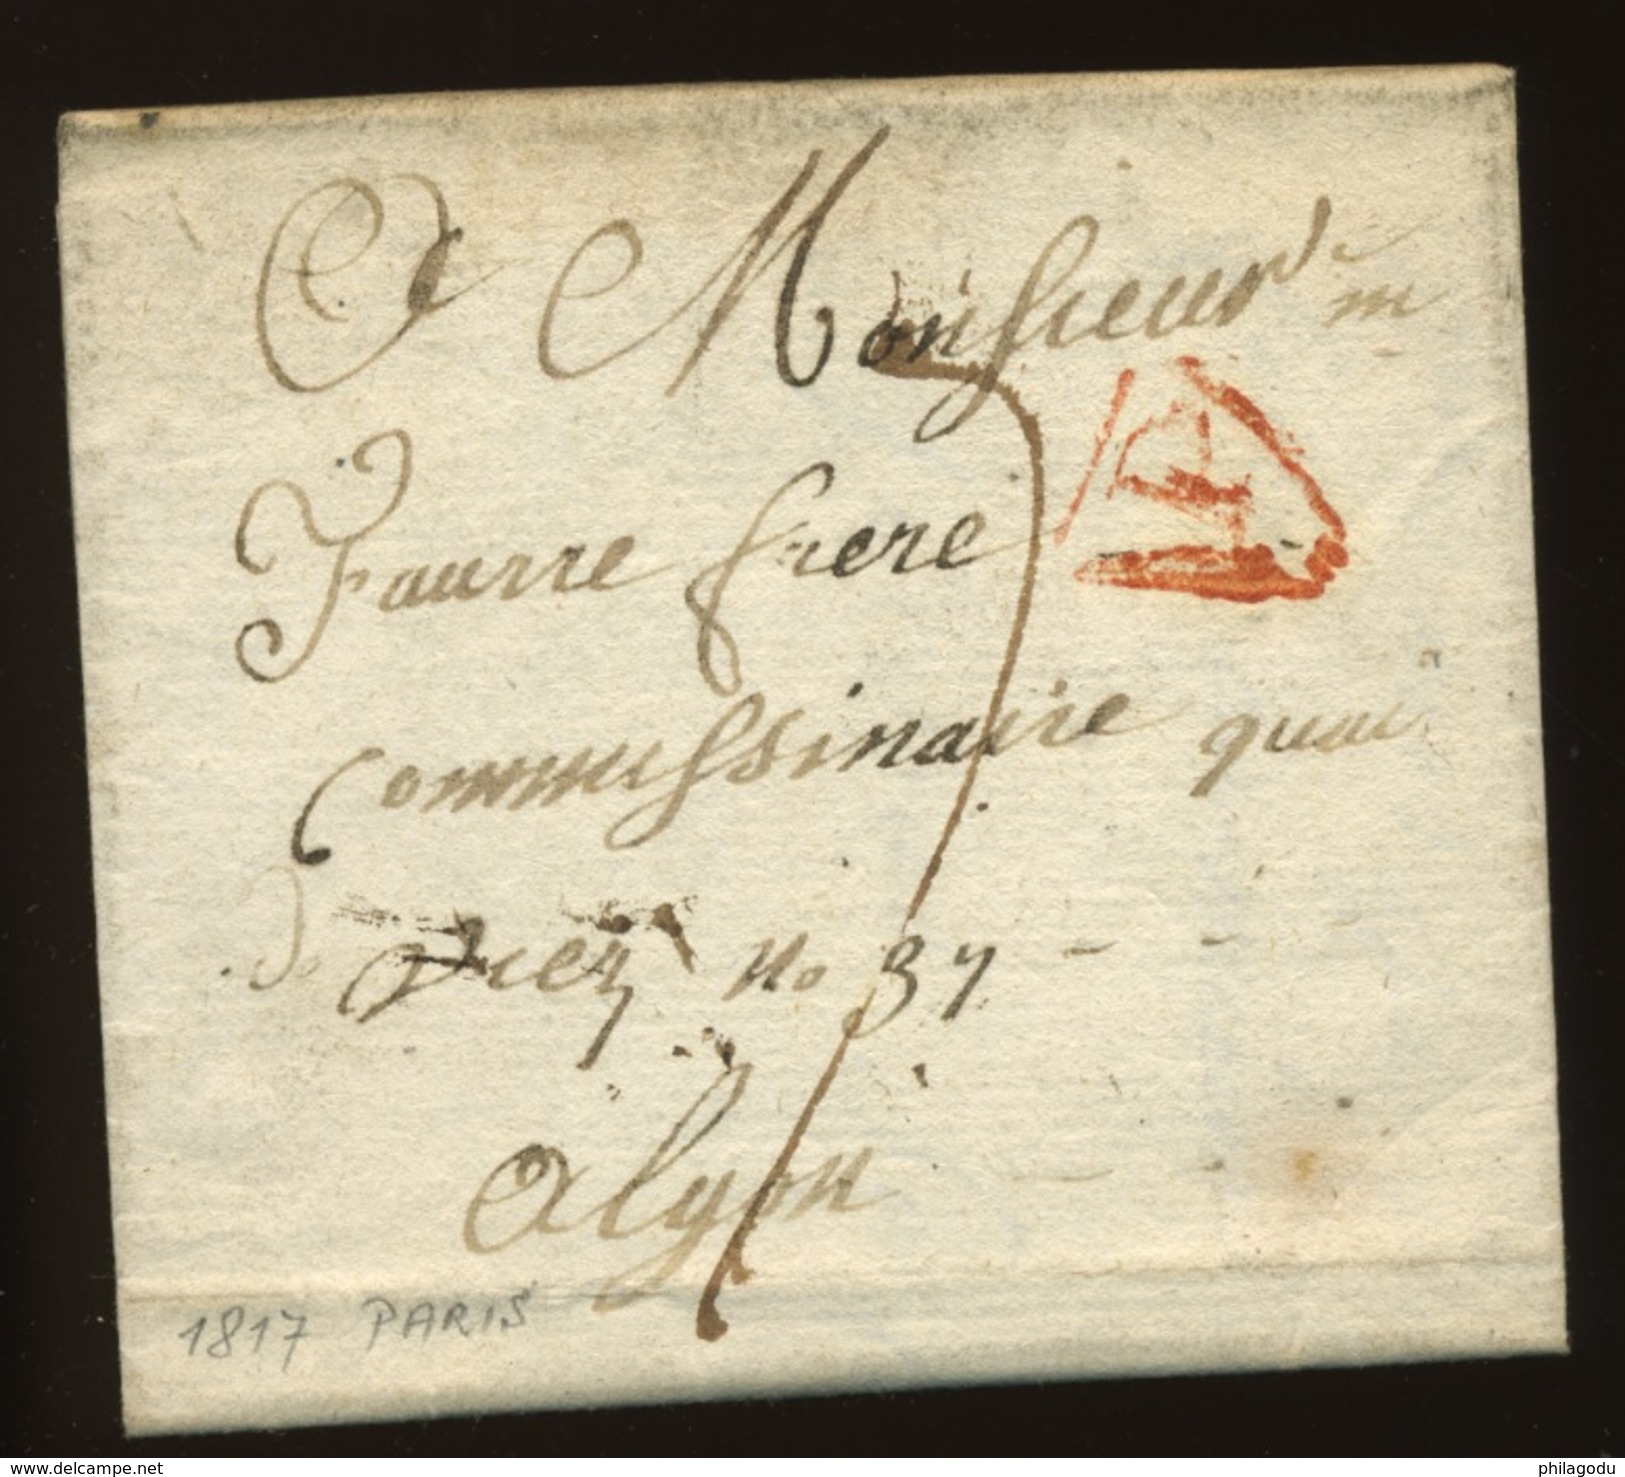 A Monsieur m
Faurre frere
Commissinaire quai
de No 37
alyon
1817 PARIS
www.delcampe.net
philagodu